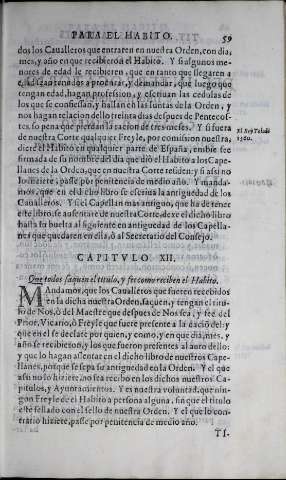 PARA EL HABITO. TIT.
59
dos los Caualleros que entraren en nuestra Orden, con dia,
mes, y año en que recibieron el Habito. Y si algunos me-
nores de edad le recibieren, que en tanto que llegaren a
ella sean tenidos a profesar, y demandar, que luego que
tengan edad, hagan profession, y escriuan las cedulas de
los que se confiessan, y hallan en las juntas de la Orden, y
nos hagan relacion dello treinta dias despues de Pentecos-
tes so pena que pierdan la racion de tres meses. Y si fuera
de nuestra Corte qualquier Freyle, por comission nuestra,
diere el Habito en qualquier parte de España, embie fee
firmada de su nombre del dia que dió el Habito a los Cape-
llanes de la Orden, que en nuestra Corte residen: y si assi no
lo hiziere, passe por penitencia de medio año. Y manda-
mos, que en el dicho libro se escriua la antiguedad de los
Caualleros. Y si el Capellan mas antiguo, que ha de tener
este libro, se ausentare de nuestra Corte, dexe el dicho libro
hasta su buelta al siguiente en antiguedad de los Capella-
nes que quedaren en ella, ò al Secretario del Consejo.
El Rey Toledo
1560.
CAPITVLO XII.
Que todos saquen el titulo, y fee como reciben el Habito.
MAndamos, que los Caualleros que fueren recebidos
en la dicha nuestra Orden, saquen, y tengan el titu-
lo de Nos, ò del Maestre que despues de Nos sea, y fee del
Prior, Vicario, ò Freyle que fuere presente a la dacion del: y
que en el se declare por quien, y como, y en que dia, mes, y
año se recibieron, y los que fueron presentes al auto dello:
y que lo hagan assentar en el dicho libro de nuestros Cape-
llanes, porque se sepa su antiguedad en la Orden. Y el que
assi no lo hiziere, no sea recibo en los dichos nuestros Ca-
pitulos, y Ayuntamientos. Y es nuestra voluntad, que nin-
gun Freyle de el Habito a persona alguna, sin que el titulo
esté sellado con el sello de nuestra Orden. Y el que lo con-
trario hiziere, passe por penitencia de medio año.
TI-